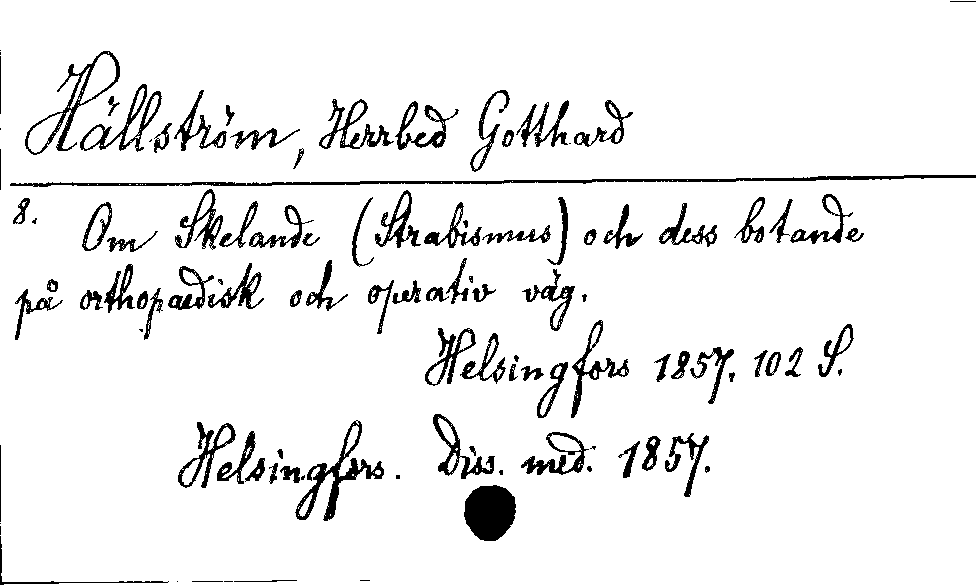 Hällström, Herrbed Gotthard
8. Om Skelande (Strabismus) och dess botande
på orthopaedisk och operativ väg.
Helsingfors 1857. 102 S.
Helsingfors. Diss. med. 1857.